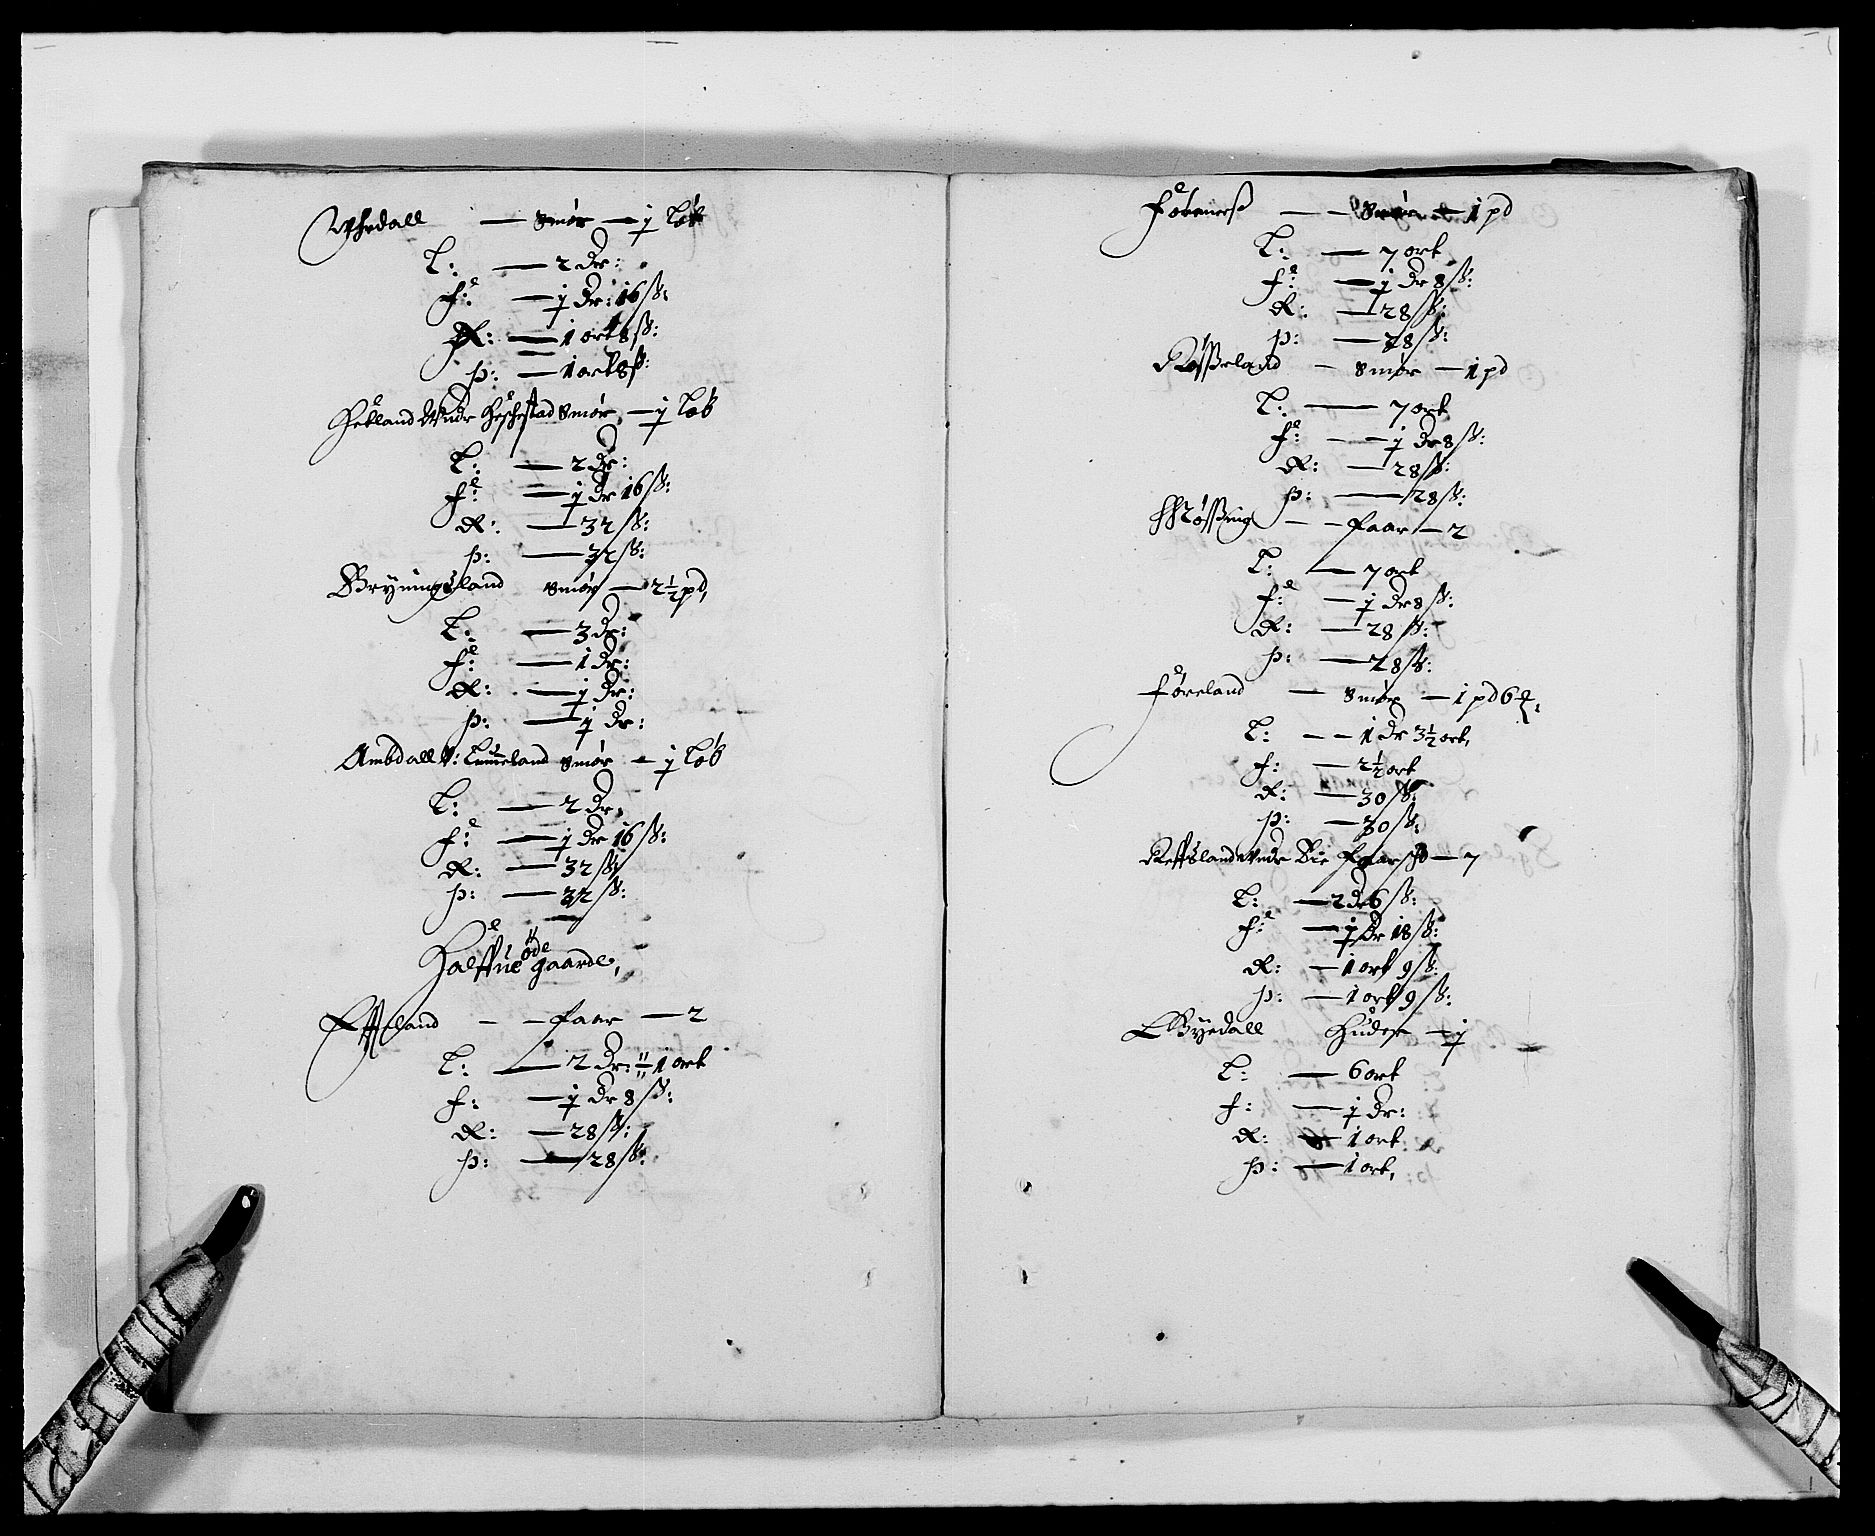 Ahrdall — Smør — ½ løb
L: — 2 dr:
f: — ½ dr: 16 ß:
R: — 1 ort 8 ß:
þ: — 1 ort 8 ß:
Hetland Vndr Heschestad Smør — ½ løb
L: — 2 dr:
f: — ½ dr 16 ß:
R: — 32 ß:
þ: — 32 ß:
Bryningsland Smør — 2½ pd,
L: — 3 dr:
f: — 1 dr:
R: — ½ dr:
þ: — ½ dr:
Ambdall V: Lunneland Smør — ½ løb
L: — 2 dr,
f: — ½ dr 16 ß:
R: — 32 ß:
þ: — 32 ß:
Halffue øde gaarde,
Efteland — — faar — 2
L: — 2 dr: 1 ort
f: — ½ dr 8 ß:
R: — 28 ß:
þ: — 28 ß:
— — Smør — 1 pd
L: — 7 ort
f: — ½ dr 8 ß:
R: — 28 ß:
þ: — 28 ß:
Røsseland — Smør — 1 pd
L: — 7 ort
f: — — ½ dr 8 ß:
R: — 28 ß:
þ: — 28 ß:
Møssing — — faar — 2
L: — 7 ort
f: — ½ dr 8 ß:
R: — 28 ß:
þ: — 28 ß:
Føreland — Smør — 1 pd 6
L: — — 1 dr 3½ ort,
f: — 2½ ort
R: — 30 ß:
þ: — 30 ß:
Refsland Vndr Bie — 7
L: — 2 dr 6 ß:
f: — ½ dr 18 ß:
R: — 1 ort 9 ß:
þ: — 1 ort 9 ß:
Byedall Huder — ½
L: — 6 ort
f: — ½ dr:
R: — 1 ort
þ: — 1 ort,